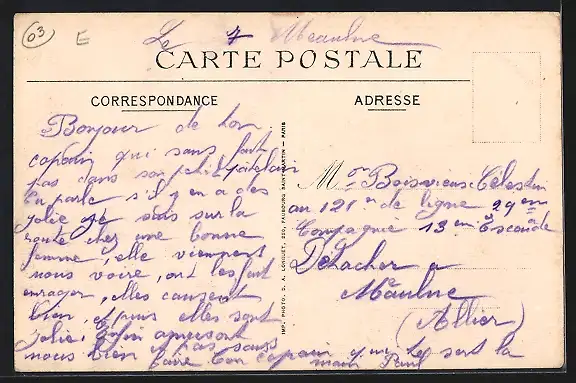 03 E
Le 7 Meaulne
CARTE POSTALE
CORRESPONDANCE
ADRESSE
Bonjour de ton
copain qui sans fout
pas dans son petit
En parle s'il y en a des
jolie je suis sur la
route chez une bonne
femme, elle viennent
nous voire, ont les fait
enrager, elles causent
bien, et puis elles sont
jolie. Enfin
nous bien pas sans
faire ton copain qui te sert la
main Paul
IMP. PHOTO. D. A. LONGUET, 250, FAUBOURG SAINT-MARTIN — PARIS
Mr Boisvieux Célestin
au 121 de ligne 29 em
Compagnie 13 em Escouade
Détacher a
Meaulne
(Allier)